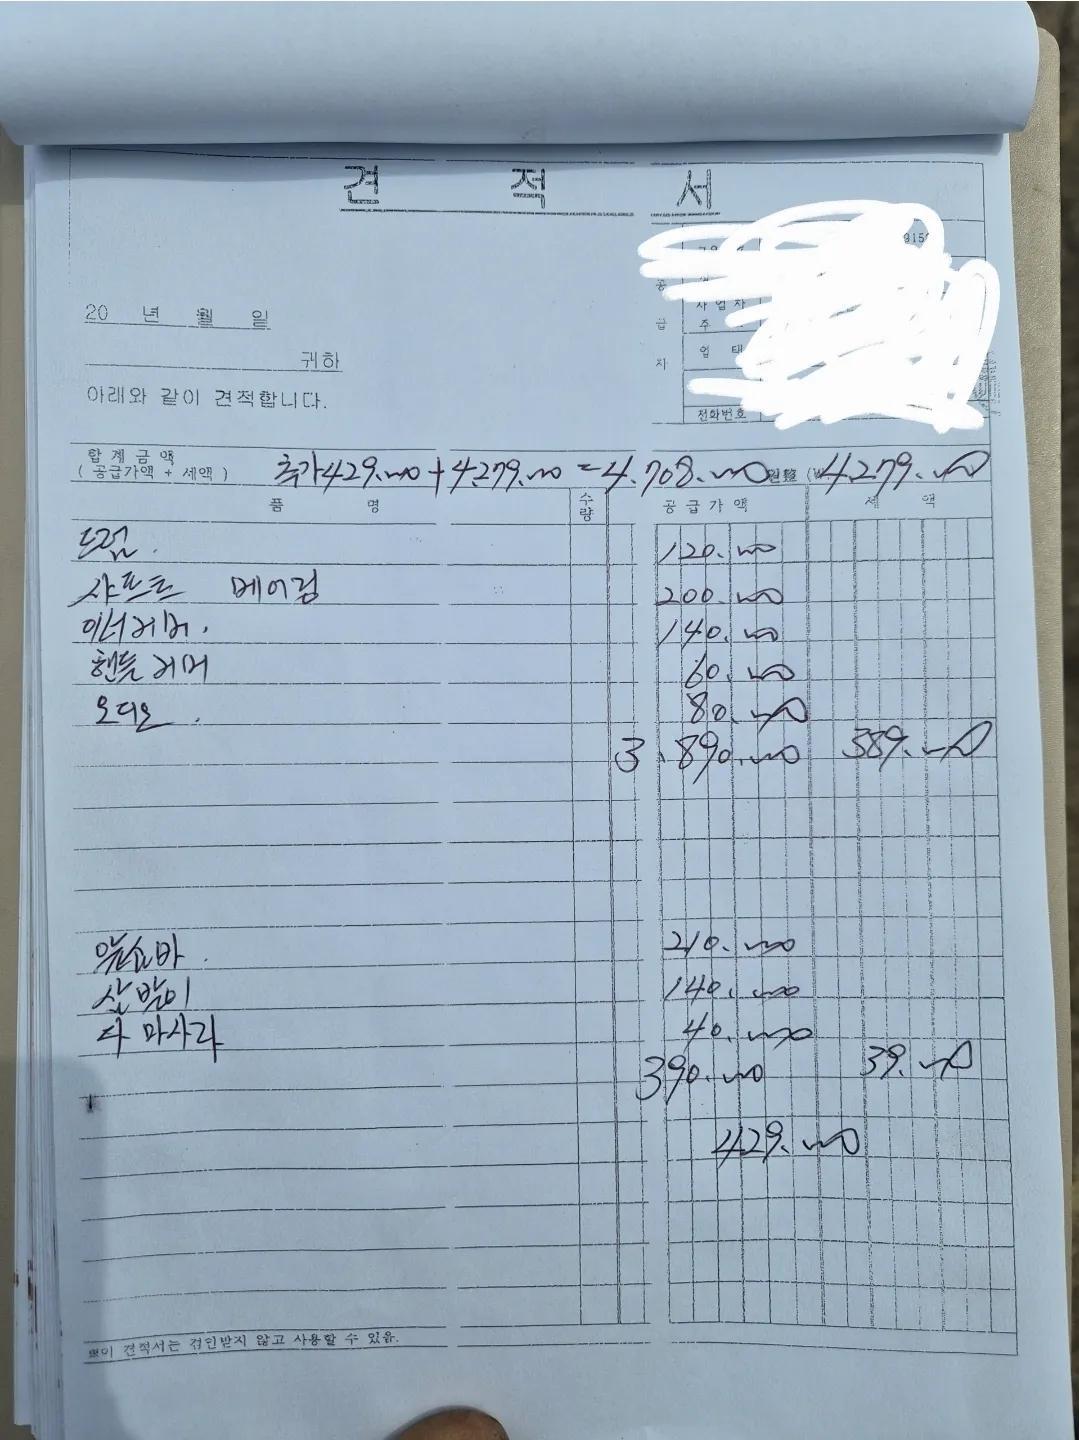 견 적 서
915
20 년 월 일
공
사업자
급 주
귀하
자 업 태
아래와 같이 견적합니다.
전화번호
합계금액
(공급가액 + 세액) 추가429.000+4.279.000=4.708.000원整 (₩4.279.000
품 명 수량 공급가액 세 액
드럼. 120.000
샤프트 베어링 200.000
이너커버. 140.000
핸들커버 60.000
오디오. 80.000
3.890.000 389.000
210.000
140.000
40.000
390.000 39.000
429.000
※이 견적서는 검인받지 않고 사용할 수 있음.